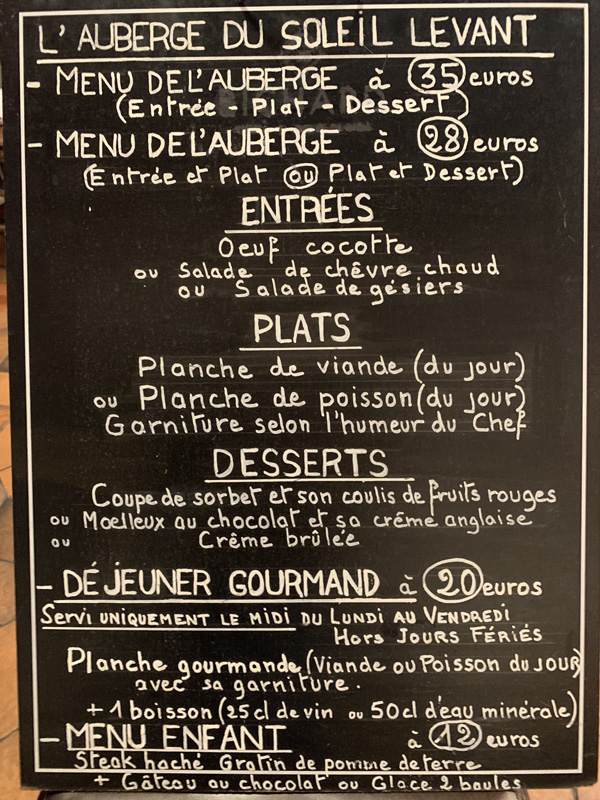 L'AUBERGE DU SOLEIL LEVANT
- MENU DE L'AUBERGE à 35 euros
(Entrée - Plat - Dessert)
- MENU DE L'AUBERGE à 28 euros
(Entrée et Plat ou Plat et Dessert)
ENTRÉES
Oeuf cocotte
ou Salade de chêvre chaud
ou Salade de gésiers
PLATS
Planche de viande (du jour)
ou Planche de poisson (du jour)
Garniture selon l'humeur du Chef
DESSERTS
Coupe de sorbet et son coulis de fruits rouges
ou Moelleux au chocolat et sa crême anglaise
ou Crême brûlée
- DÉJEUNER GOURMAND à 20 euros
Servi UNIQUEMENT LE MIDI DU LUNDI AU VENDREDI
HORS JOURS FÉRIÉS
Planche gourmande (Viande ou Poisson du JOUR)
avec sa garniture.
+ 1 boisson (25 cl de vin ou 50 cl d'eau minérale)
- MENU ENFANT à 12 euros
Steak haché Gratin de pomme de terre
+ Gâteau au chocolat ou Glace 2 boules